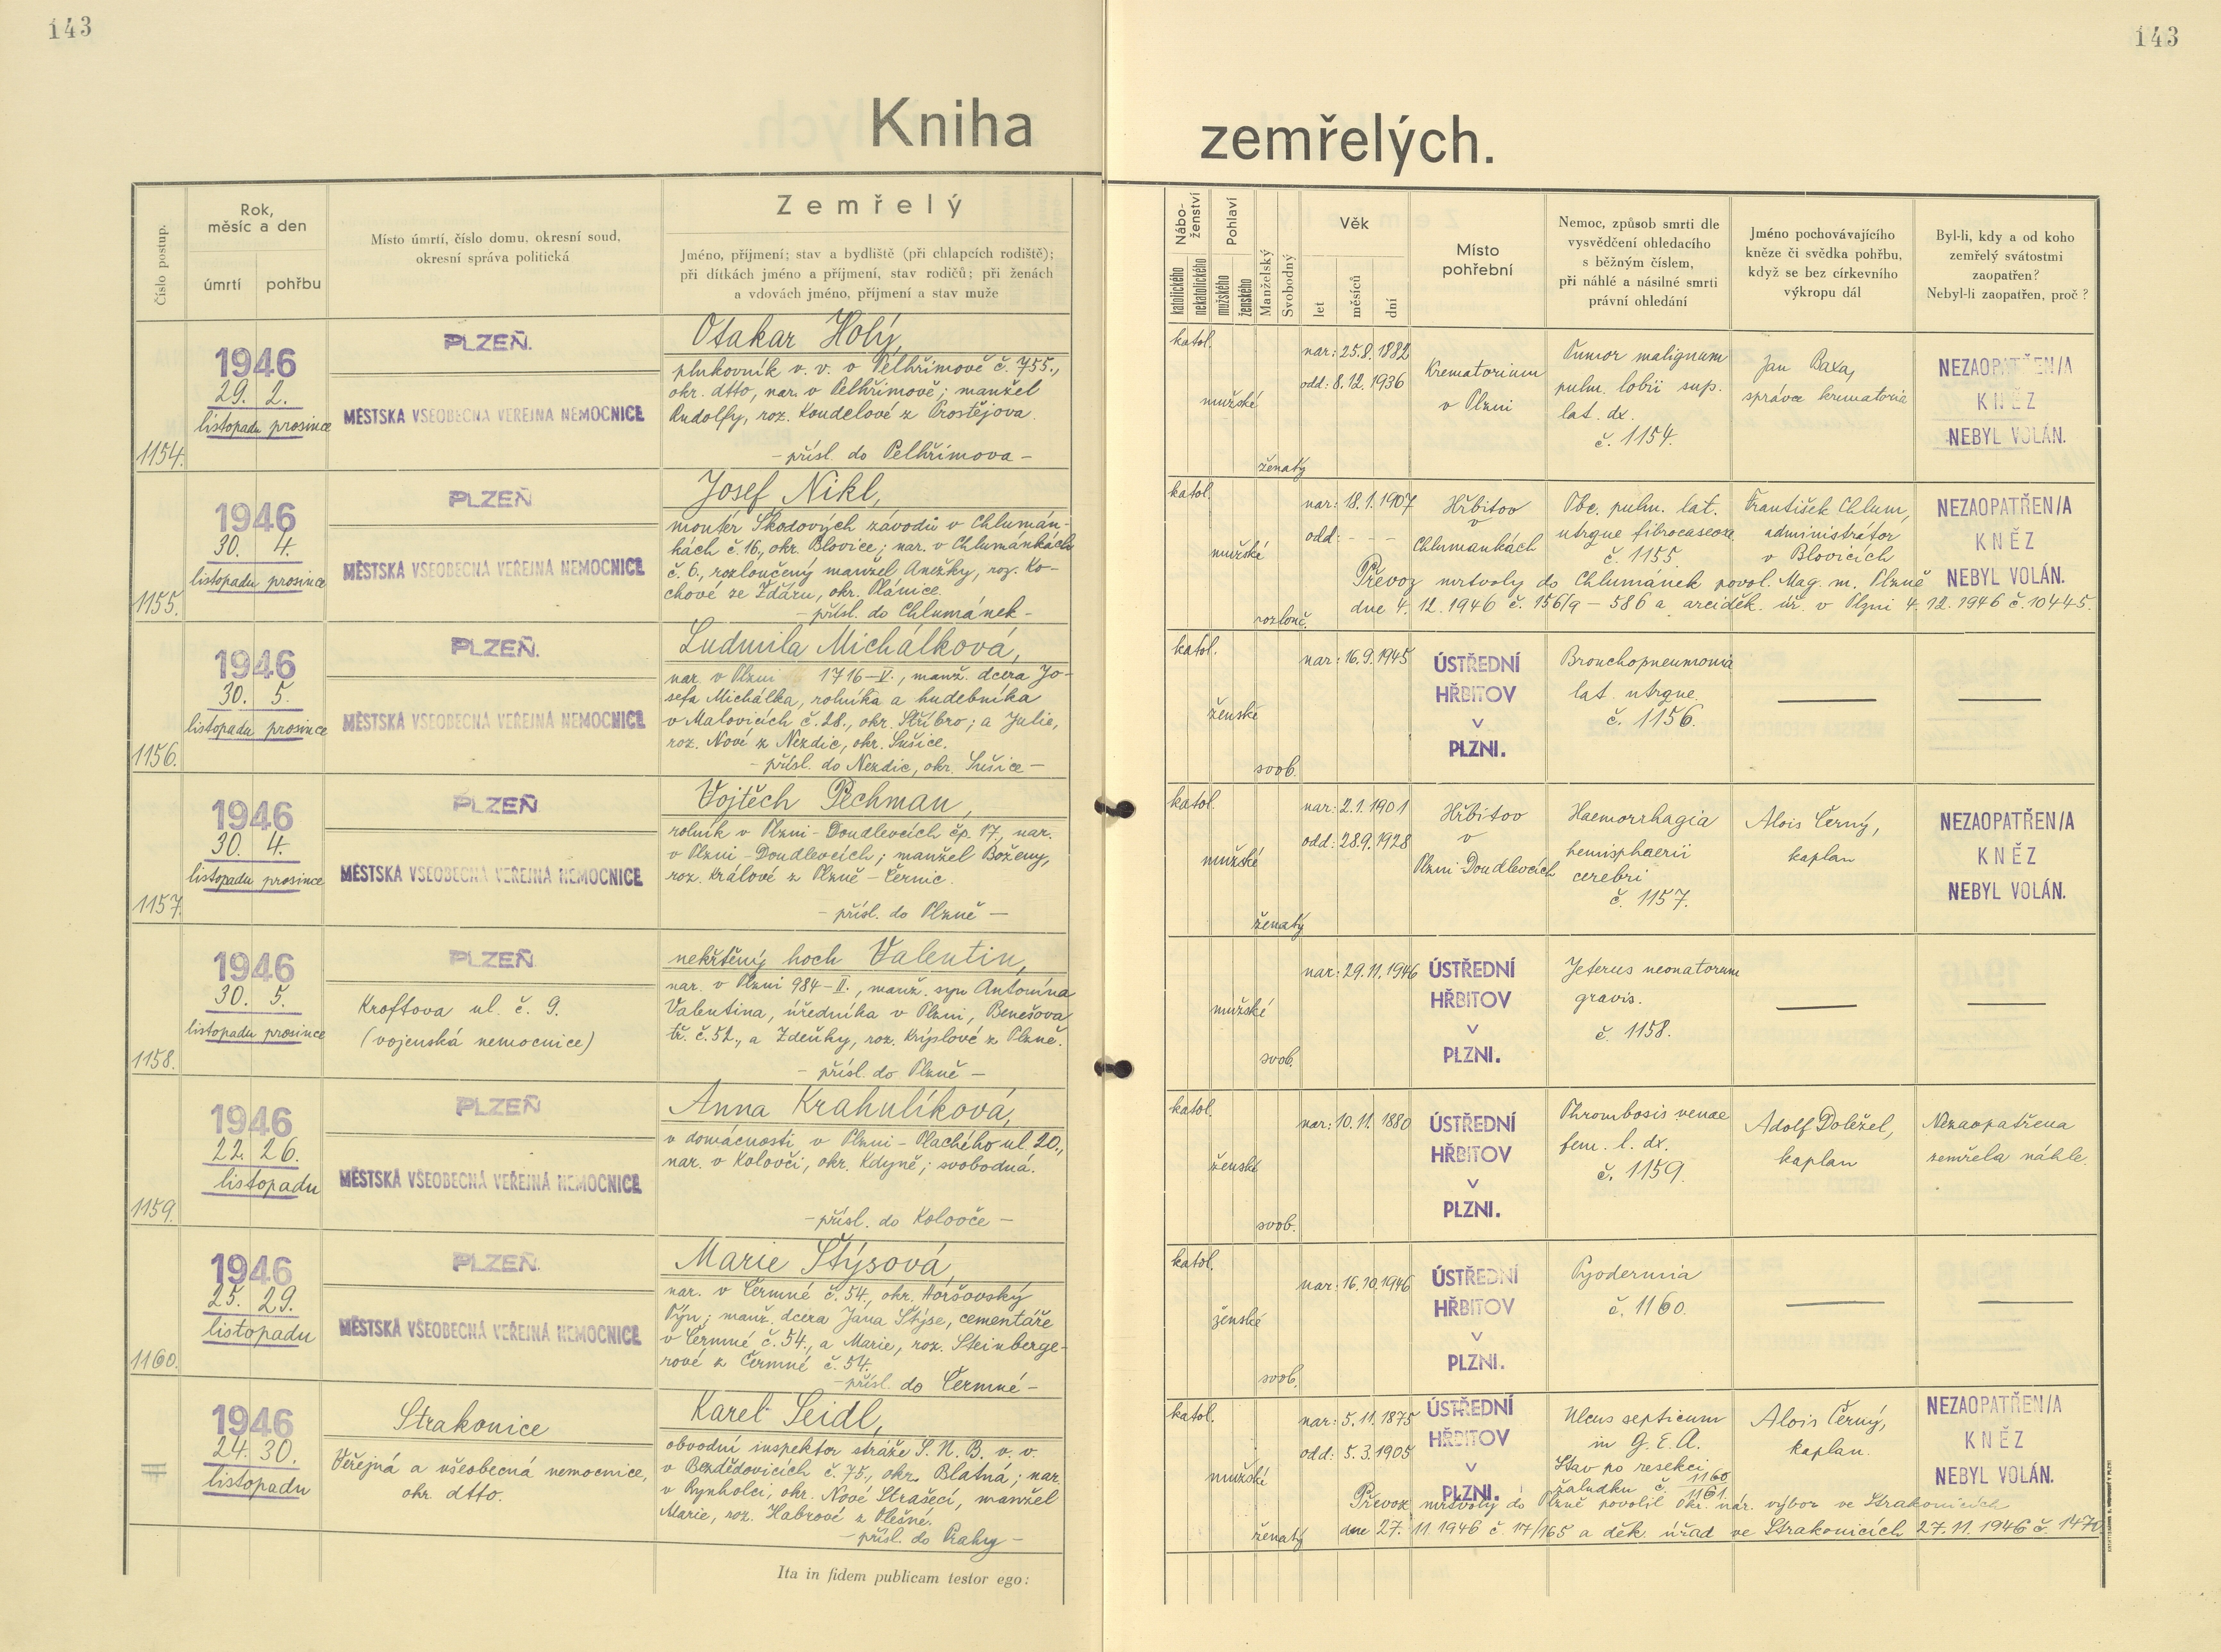 143
143
Kniha
zemřelých.
Číslo postup.
Rok,
měsíc a den
úmrtí
pohřbu
Místo úmrtí, číslo domu, okresní soud,
okresní správa politická
Zemřelý
Jméno, příjmení; stav a bydliště (při chlapcích rodiště);
při dítkách jméno a příjmení, stav rodičů; při ženách
a vdovách jméno, příjmení a stav muže
Nábo-
ženství
katolického
nekatolického
Pohlaví
mužského
ženského
Manželský
Svobodný
Věk
let
měsíců
dní
Místo
pohřební
Nemoc, způsob smrti dle
vysvědčení ohledacího
s běžným číslem,
při náhlé a násilné smrti
právní ohledání
Jméno pochovávajícího
kněze či svědka pohřbu,
když se bez církevního
výkropu dál
Byl-li, kdy a od koho
zemřelý svátostmi
zaopatřen?
Nebyl-li zaopatřen, proč?
1154.
1946
29. 2.
listopadu prosince
PLZEŇ.
MĚSTSKÁ VŠEOBECNÁ VEŘEJNÁ NEMOCNICE
Otakar Holý,
plukovník v. v. v Pelhřimově č. 755.,
okr. dtto, nar. v Pelhřimově; manžel
Rudolfy, roz. Koudelové z Prostějova.
- přísl. do Pelhřimova -
katol.
mužské
ženatý
nar: 25.8.1882
odd: 8.12.1936
Krematorium
v Plzni
Tumor malignum
pulm. lobii sup.
lat. dx.
č. 1154.
Jan Baxa,
správce krematoria
NEZAOPATŘEN/A
KNĚZ
NEBYL VOLÁN.
1155.
1946
30. 4.
listopadu prosince
PLZEŇ
MĚSTSKÁ VŠEOBECNÁ VEŘEJNÁ NEMOCNICE
Josef Nikl,
montér Škodových závodů v Chlumán-
kách č. 16., okr. Blovice; nar. v Chlumánkách
č. 6., rozloučený manžel Anežky, roz. Ko-
chové ze Žďáru, okr. Plánice.
- přísl. do Chlumánek -
katol.
mužské
rozlouč.
nar: 18.1.1907
odd: - - -
Hřbitov
v
Chlumánkách
Tbc. pulm. lat.
utrque fibrocaseosa
č. 1155.
František Chlum,
administrátor
v Blovicích
NEZAOPATŘEN/A
KNĚZ
NEBYL VOLÁN.
Převoz mrtvoly do Chlumánek povol. Mag. m. Plzně
dne 4. 12. 1946 č. 156/9 - 586 a arciděk. úř. v Plzni 4. 12. 1946 č. 10445.
1156.
1946
30. 5.
listopadu prosince
PLZEŇ.
MĚSTSKÁ VŠEOBECNÁ VEŘEJNÁ NEMOCNICE
Ludmila Michálková,
nar. v Plzni 1716-V., manž. dcera Jo-
sefa Michálka, rolníka a hudebníka
v Malovicích č. 28., okr. Stříbro; a Julie,
roz. Nové z Nezdic, okr. Sušice.
- přísl. do Nezdic, okr. Sušice -
katol.
ženské
svob.
nar: 16.9.1945
ÚSTŘEDNÍ
HŘBITOV
V
PLZNI.
Bronchopneumonia
lat. utrque.
č. 1156.
1157.
1946
30. 4.
listopadu prosince
PLZEŇ
MĚSTSKÁ VŠEOBECNÁ VEŘEJNÁ NEMOCNICE
Vojtěch Pechman,
rolník v Plzni - Doudlevcích čp. 17, nar.
v Plzni - Doudlevcích; manžel Boženy,
roz. Králové z Plzně - Černic.
- přísl. do Plzně -
katol.
mužské
ženatý
nar: 2.1.1901
odd: 28.9.1928
Hřbitov
v
Plzni-Doudlevcích
Haemorrhagia
hemisphaerii
cerebri
č. 1157.
Alois Černý,
kaplan
NEZAOPATŘEN/A
KNĚZ
NEBYL VOLÁN.
1158.
1946
30. 5.
listopadu prosince
PLZEŇ
Kroftova ul. č. 9.
(vojenská nemocnice)
nekřtěný hoch Valentin,
nar. v Plzni 984-II., manž. syn Antonína
Valentina, úředníka v Plzni, Benešova
tř. č. 52., a Zdeňky, roz. Kripslové z Plzně.
- přísl. do Plzně -
mužské
svob.
nar: 29.11.1946
ÚSTŘEDNÍ
HŘBITOV
V
PLZNI.
Jeterus neonatorum
gravis.
č. 1158.
1159.
1946
22. 26.
listopadu
PLZEŇ
MĚSTSKÁ VŠEOBECNÁ VEŘEJNÁ NEMOCNICE
Anna Krahulíková,
v domácnosti v Plzni - Plachého ul. 20.,
nar. v Kolovči, okr. Kdyně; svobodná.
- přísl. do Kolovče -
katol.
ženské
svob.
nar: 10.11.1880
ÚSTŘEDNÍ
HŘBITOV
V
PLZNI.
Thrombosis venae
fem. l. dx.
č. 1159.
Adolf Doležel,
kaplan
Nezaopatřena
zemřela náhle.
1160.
1946
25. 29.
listopadu
PLZEŇ.
MĚSTSKÁ VŠEOBECNÁ VEŘEJNÁ NEMOCNICE
Marie Štýsová,
nar. v Čermné č. 54., okr. Horšovský
Týn; manž. dcera Jána Štýse, cementáře
v Čermné č. 54., a Marie, roz. Steinberge-
rové z Čermné č. 54.
- přísl. do Čermné -
katol.
ženské
svob.
nar: 16.10.1946
ÚSTŘEDNÍ
HŘBITOV
V
PLZNI.
Pyodermia
č. 1160.
1946
24. 30.
listopadu
Strakonice
Veřejná a všeobecná nemocnice,
okr. dtto.
Karel Seidl,
obvodní inspektor stráže S. N. B. v. v.
v Bezdědovicích č. 75., okr. Blatná; nar.
v Rynholci, okr. Nové Strašecí, manžel
Marie, roz. Habrové z Plešné.
- přísl. do Prahy -
katol.
mužské
ženatý
nar: 5.11.1875
odd: 5.3.1905
ÚSTŘEDNÍ
HŘBITOV
V
PLZNI.
Ulcus septicum
in G. E. A.
Stav po resekci
žaludku č. 1160.
1161.
Alois Černý,
kaplan.
NEZAOPATŘEN/A
KNĚZ
NEBYL VOLÁN.
Převoz mrtvoly do Plzně povolil okr. nár. výbor ve Strakonicích
dne 27. 11. 1946 č. 17/165 a děk. úřad ve Strakonicích 27. 11. 1946 č. 1470.
Ita in fidem publicam testor ego: